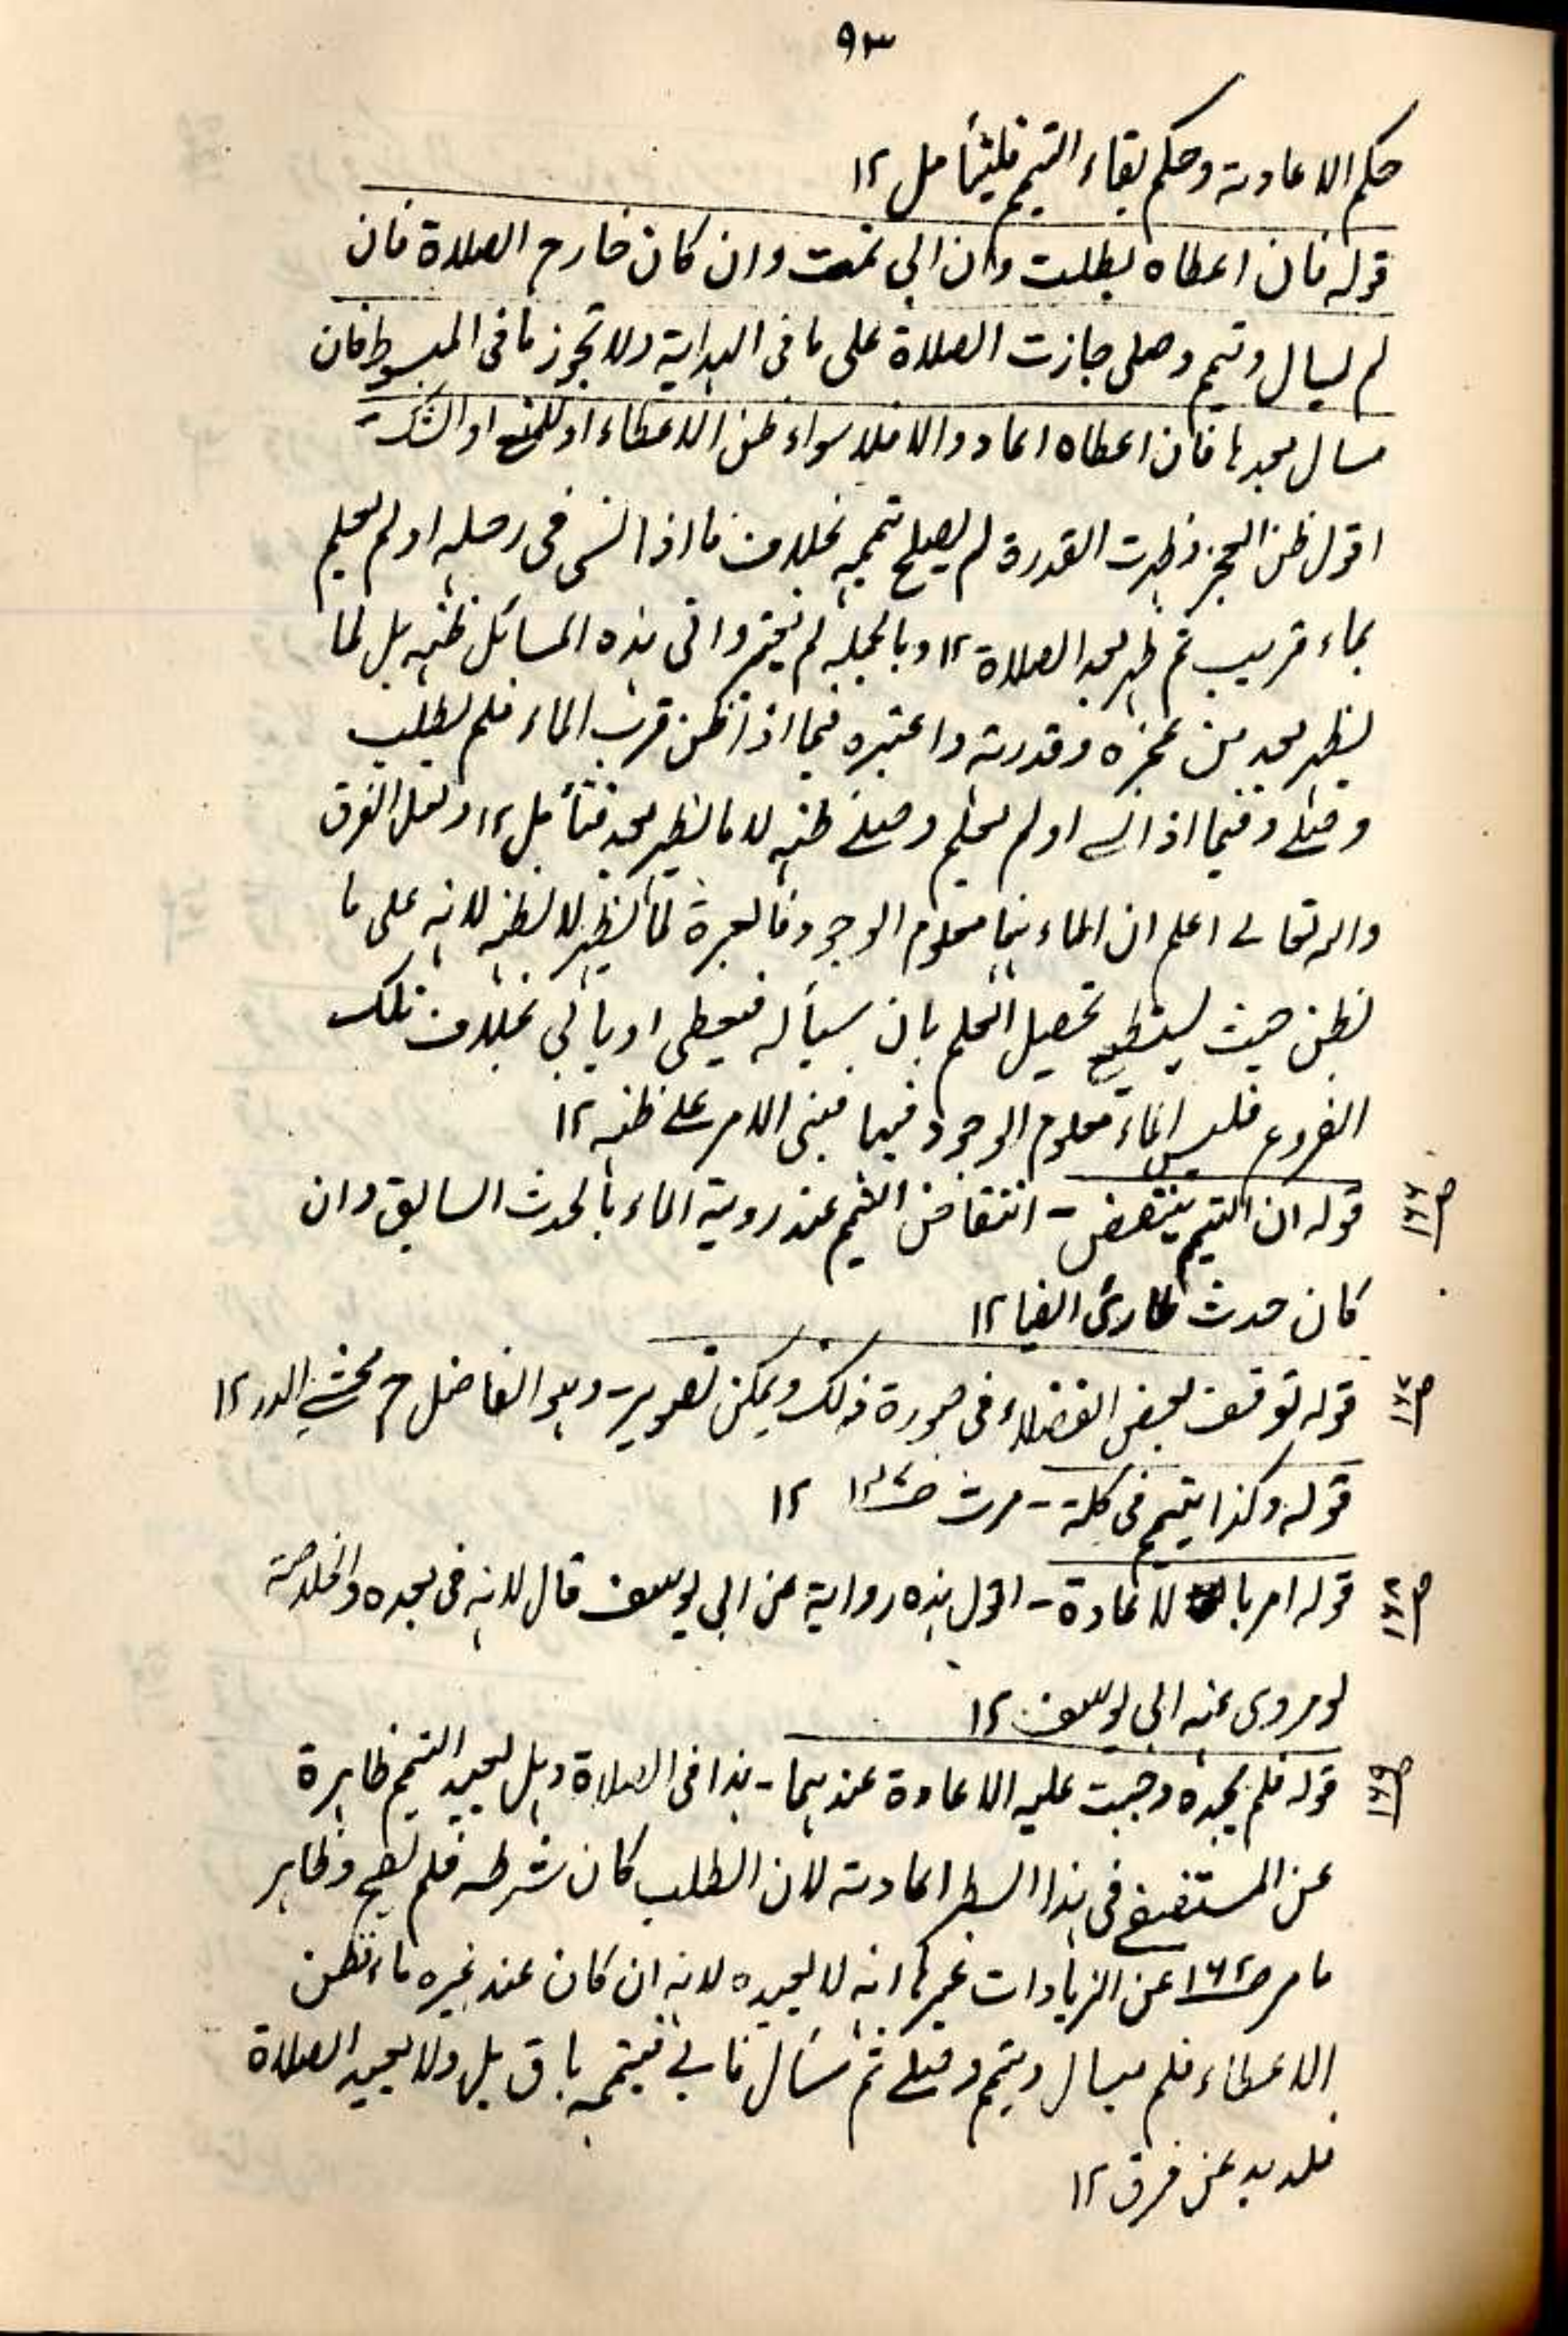 ٩٣
حكم الاعادة وحكم بقاء التيمم فليتأمل ١٢
قوله فان اعطاه بطلت وان ابى تمت وان كان خارج الصلاة فان
لم يسأل وتيمم وصلى جازت الصلاة على ما فى الهداية ولا تجوز ما فى المبسوط فان
سال بعدها فان اعطاه اعاد والا فلا سواء ظن الاعطاء او المنع او الشك
اقول ظن العجز فظهرت القدرة لم يصلح تيممه بخلاف ما اذا نسى فى رحله او لم يعلم
بماء قريب ثم ظهر بعد الصلاة ١٢ وبالجملة لم يعتبروا فى هذه المسائل ظنه بل لما
يظهر بعد من عجزه وقدرته واعتبره فيما اذا ظن قرب الماء فلم يطلب
وصلے وفيما اذا نسے او لم يعلم وصلے ظنه لا ما يظهر بعد فتأمل ١٢ ولعل الفرق
والله تعالے اعلم ان الماء ههنا معلوم الوجود فالعبرة لما يظهر لا لظنه لانه على ما
يظن حيث يستطيع تحصيل العلم بان يسأله فيعطى او يأبى بخلاف تلك
الفروع فليس الماء معلوم الوجود فيها فبنى الامر علے ظنه ١٢
ص١٦٦ قوله ان التيمم ينتقض - انتقاض التيمم عند روية الماء بالحدث السابق وان
كان حدث طارئ ايضا ١٢
ص١٦٧ قوله توقف بعض الفضلاء فى صورة ذلك ويمكن تصوير - وهو الفاضل ح محشے الدر ١٢
قوله وكذا يتيمم فى كلة - مرت ١٢
ص١٦٨ قوله امر با لاعادة - اقول هذه رواية عن ابى يوسف قال لانه فى بعده والخلاصة
لو مروى عنه ابى يوسف ١٢
ص١٦٩ قوله فلم يجده وجبت عليه الاعادة عندهما - هذا فى الصلاة وهل يعيد التيمم ظاهرة
عن المستصفے فى هذا السطر اعادته لان الطلب كان شرطه فلم يصح وظاهر
ما مر ص١٦٢ عن الزيادات غيرها انه لا يعيده لانه ان كان عند غيره ماء فظن
الاعطاء فلم يسال وتيمم وصلے ثم سأل فابے فتيممه باق بل ولا يعيد الصلاة
فلا بد عن فرق ١٢